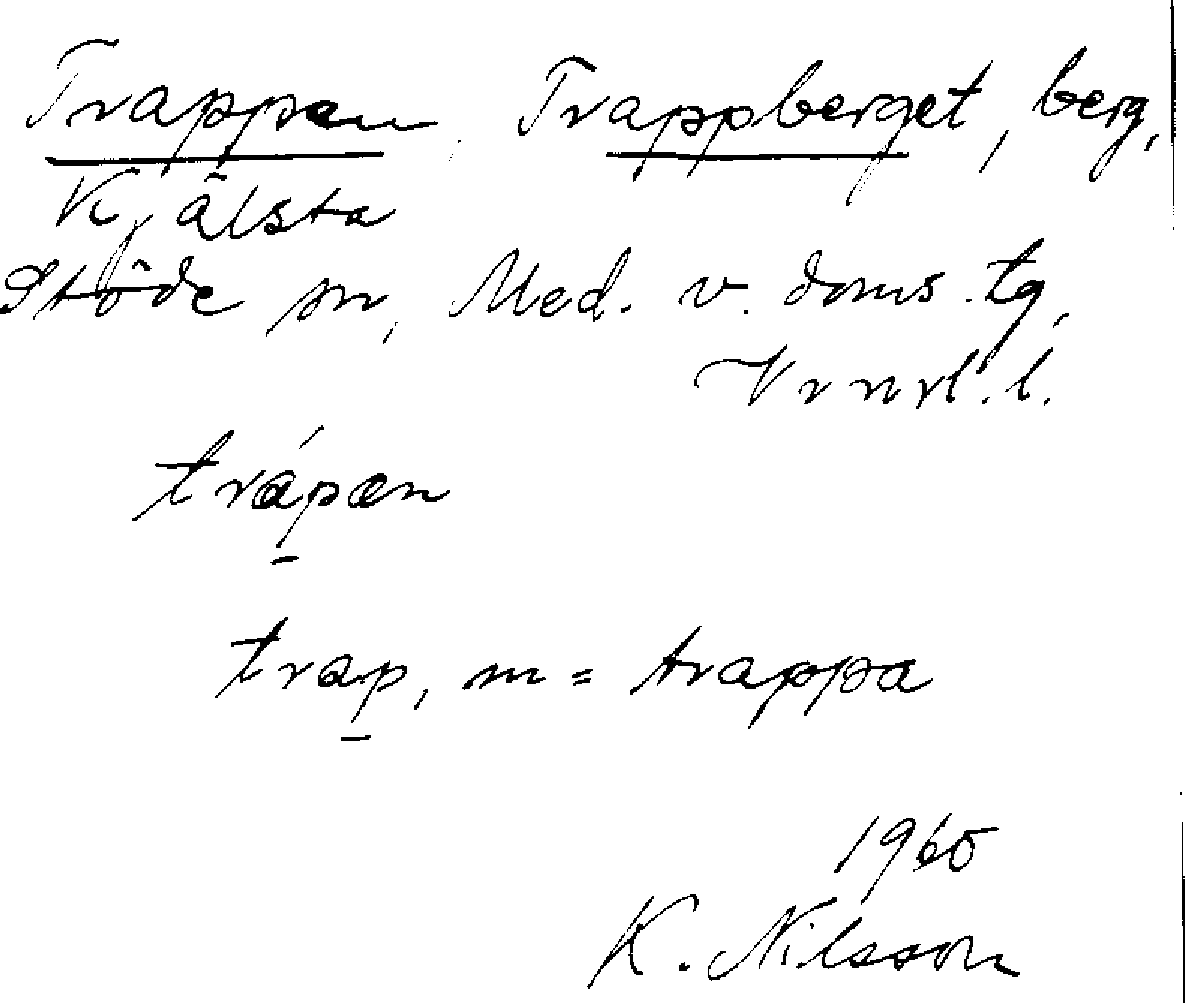 Trappen, Trappberget, berg,
Kjälsta
Stöde sn, Med. v. doms. tg,
Vrnrl. l.
trápen
trap, m = trappa
1960
K. Nilsson